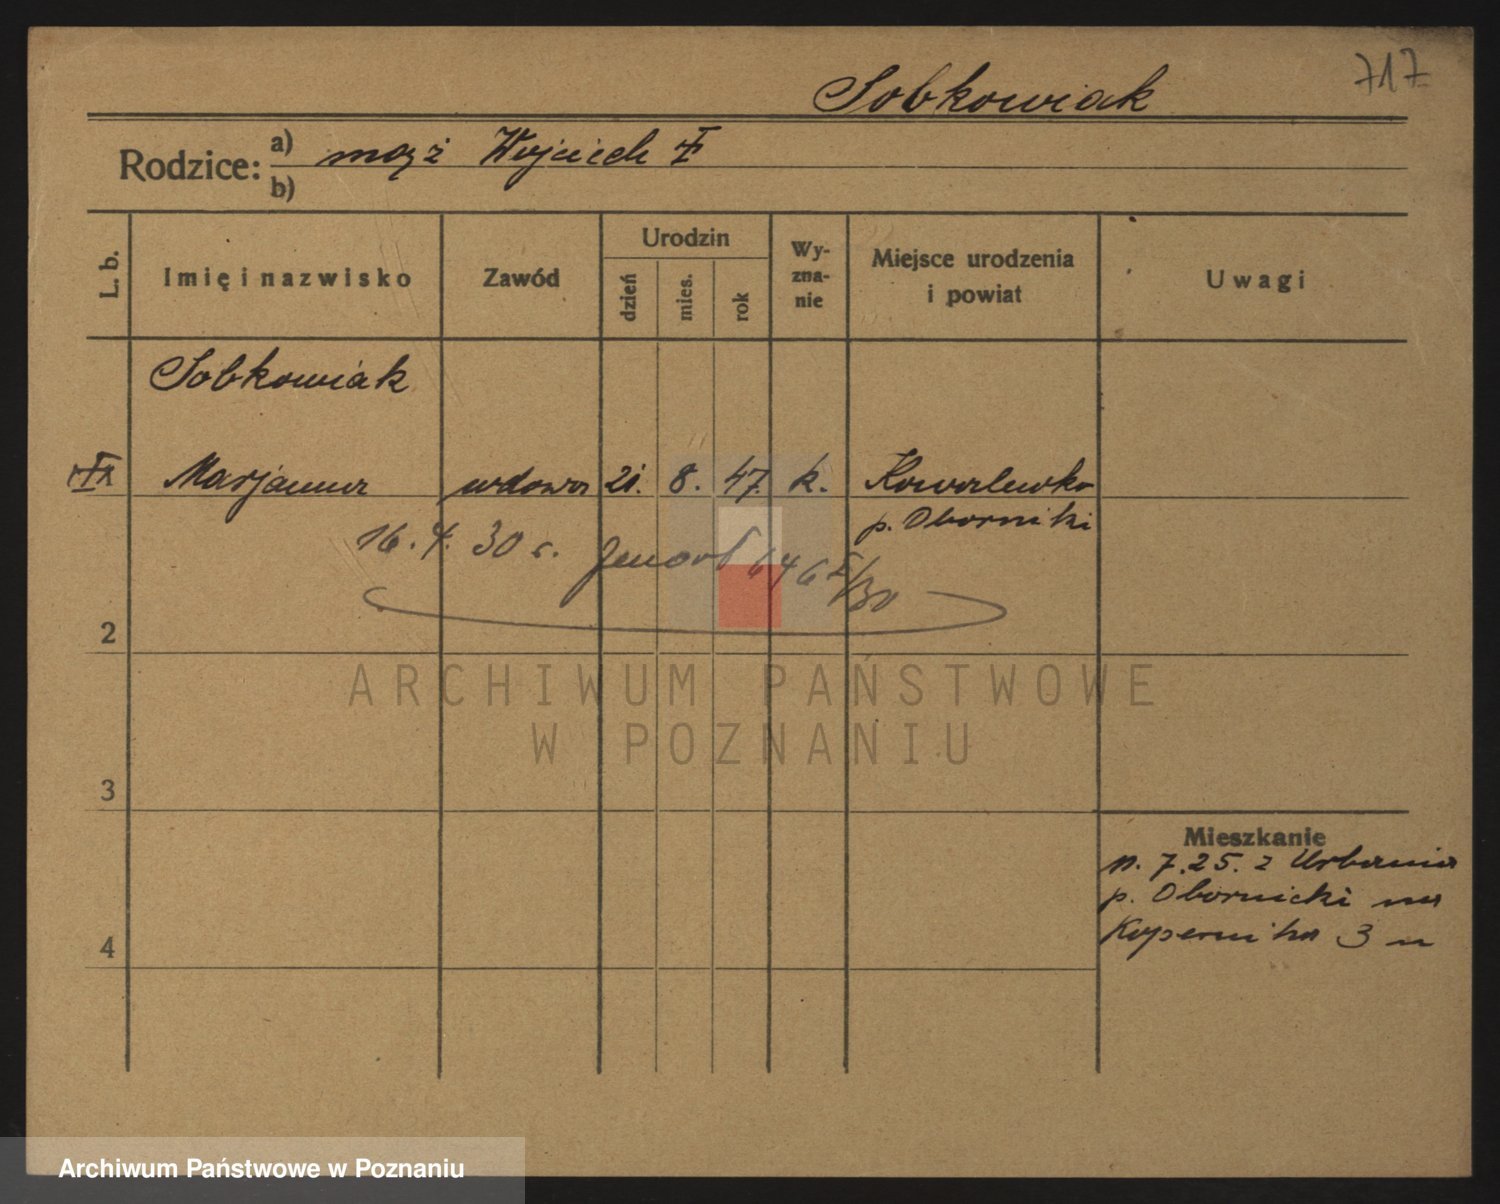 717
Sobkowiak
Rodzice: a) mąż Wojciech
b)
L. b.
Imię i nazwisko
Zawód
Urodzin
dzień
mies.
rok
Wy-
zna-
nie
Miejsce urodzenia
i powiat
Uwagi
Sobkowiak
Marjanna wdowa 21. 8. 47. k. Kowalewko
p. Oborniki
16. 4. 30 r. 646 /30
2
3
4
ARCHIWUM PAŃSTWOWE
W POZNANIU
Mieszkanie
11. 7. 25. z Urbania
p. Obornicki na
Kopernika 3
Archiwum Państwowe w Poznaniu